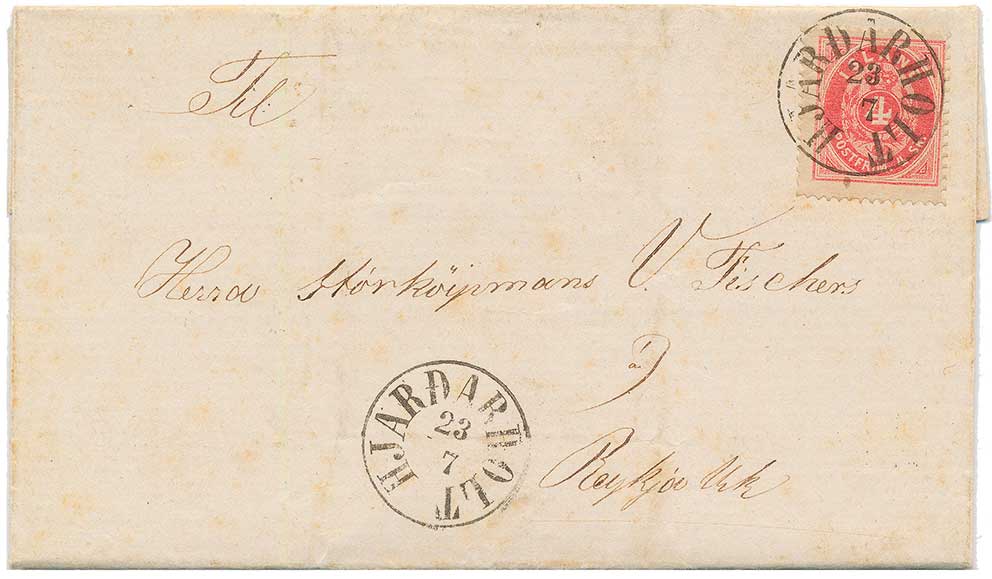 Til
HJARÐARHOLT
23
7
ISLAND
4
POSTFRIM. SK.
Herra stórköipmans V. Fischers
á
Reykjavík
HJARÐARHOLT
23
7